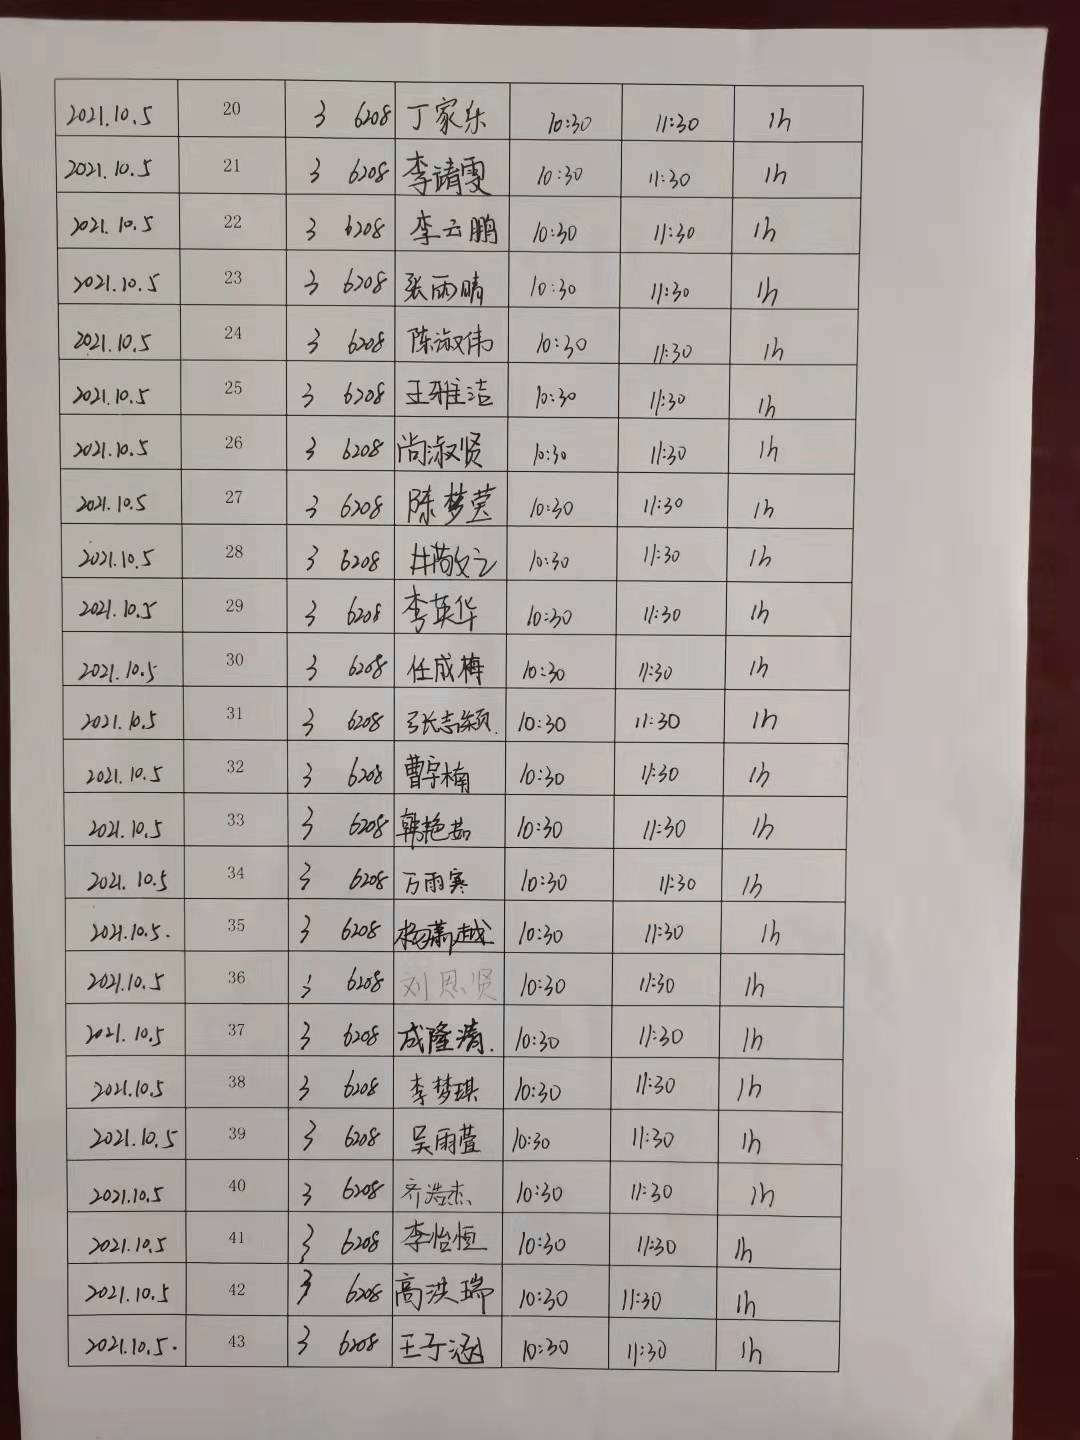 2021.10.5 20 3 6208 丁家乐 10:30 11:30 1h
2021.10.5 21 3 6208 李靖雯 10:30 11:30 1h
2021.10.5 22 3 6208 李云鹏 10:30 11:30 1h
2021.10.5 23 3 6208 张雨晴 10:30 11:30 1h
2021.10.5 24 3 6208 陈淑伟 10:30 11:30 1h
2021.10.5 25 3 6208 王雅洁 10:30 11:30 1h
2021.10.5 26 3 6208 尚淑贤 10:30 11:30 1h
2021.10.5 27 3 6208 陈梦莹 10:30 11:30 1h
2021.10.5 28 3 6208 10:30 11:30 1h
2021.10.5 29 3 6208 李英华 10:30 11:30 1h
2021.10.5 30 3 6208 任成梅 10:30 11:30 1h
2021.10.5 31 3 6208 张志颖. 10:30 11:30 1h
2021.10.5 32 3 6208 曹宇楠 10:30 11:30 1h
2021.10.5 33 3 6208 韩艳茹 10:30 11:30 1h
2021.10.5 34 3 6208 万雨寒 10:30 11:30 1h
2021.10.5. 35 3 6208 10:30 11:30 1h
2021.10.5 36 3 6208 刘恩贤 10:30 11:30 1h
2021.10.5 37 3 6208 成隆清. 10:30 11:30 1h
2021.10.5 38 3 6208 李梦琪 10:30 11:30 1h
2021.10.5 39 3 6208 吴雨萱 10:30 11:30 1h
2021.10.5 40 3 6208 齐浩杰 10:30 11:30 1h
2021.10.5 41 3 6208 李怡恒 10:30 11:30 1h
2021.10.5 42 3 6208 高洪瑞 10:30 11:30 1h
2021.10.5. 43 3 6208 王子涵 10:30 11:30 1h